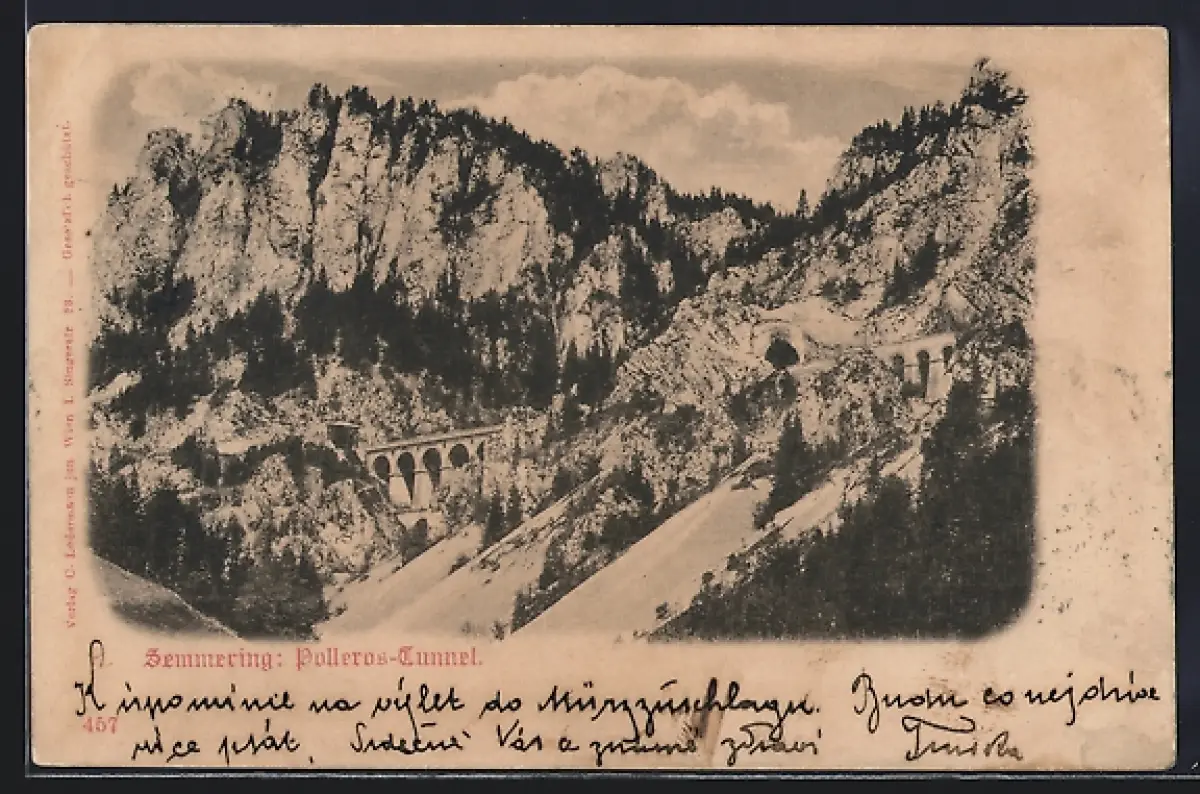 Verlag C. Ledermann jun. Wien I. Singerstr — Gesetzlich geschützt.
Semmering: Polleros-Tunnel.
K upomínce na výlet do Mürzzuschlagu. Budu co nejdříve
457
více psát. Srdečně Vás a známé zdraví